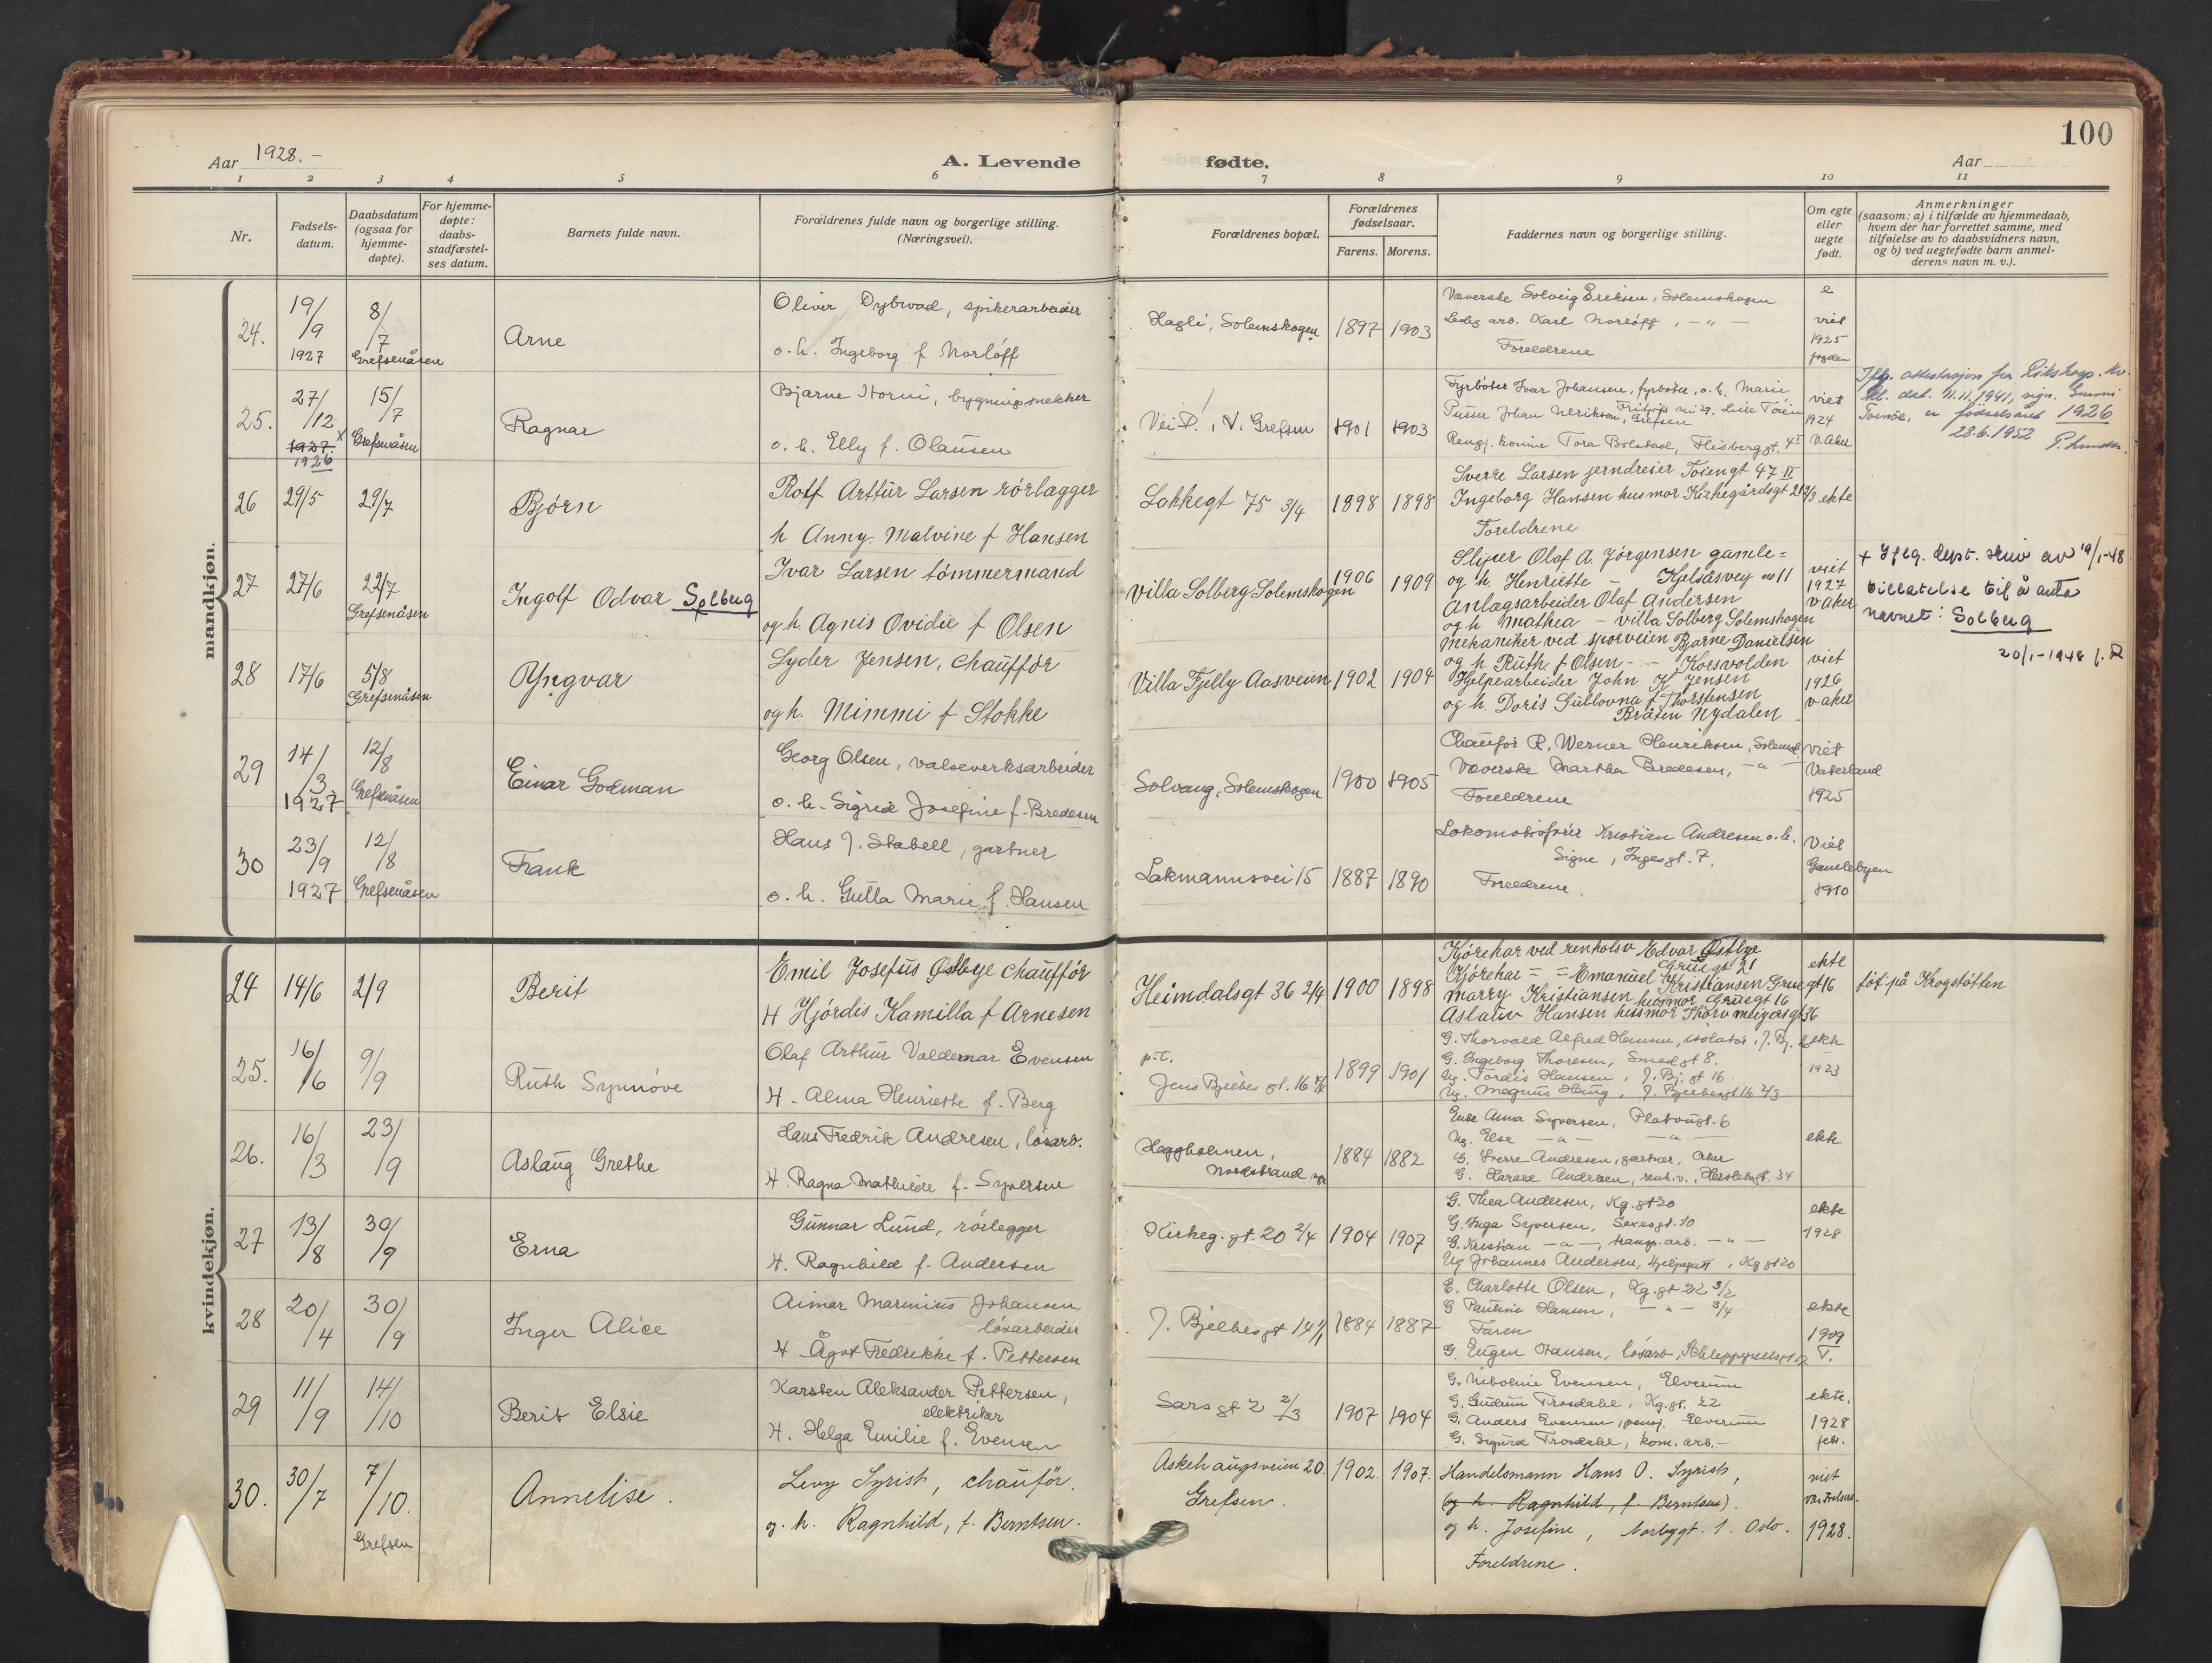 100
Aar 1928.-
A. Levende fødte.
Aar
1 2 3 4 5 6 7 8 9 10 11
Nr.
Fødsels-
datum.
Daabsdatum
(ogsaa for
hjemme-
døpte).
For hjemme-
døpte:
daabs-
stadfæstel-
ses datum.
Barnets fulde navn.
Forældrenes fulde navn og borgerlige stilling.
(Næringsvei).
Forældrenes bopæl.
Forældrenes
fødselsaar.
Farens. Morens.
Faddernes navn og borgerlige stilling.
Om egte
eller
uegte
født.
Anmerkninger
(saasom: a) i tilfælde av hjemmedaab,
hvem der har forrettet samme, med
tilføielse av to daabsvidners navn,
og b) ved uegtefødte barn anmel-
derens navn m. v.).
mandkjøn.
24.
19/9
1927
8/7
Grefsenåsen
Arne
Oliver Dybwad, spikerarbeider
o. h. Ingeborg f Norløff
Hagli, Solemskogen
1897 1903
Væverske Solveig Eriksen, Solemskogen
Ledig arb. Karl Norløff, - " -
Foreldrene
e
viet
1925
25.
27/12
1927 x
1926
15/7
Grefsenåsen
Ragnar
Bjarne Horni, bygningssnekker
o. h. Elly f. Olausen
Vei D., V. Grefsen
1901 1903
Fyrbøter Ivar Johansen, fyrbøter, o. h. Marie
Pusser Johan
Grefsen
Rengj. konine Tora Bolstad, Flisberggt. 4 I
viet
1924
V. Aker
Iflg. attestasjon fra Rikshosp. Kv.
kl. dat. 11.11.1941, sign. Gunni
er fødselsåret 1926
28.6.1952
26
29/5
29/7
Bjørn
Rolf Arthur Larsen rørlægger
h Anny Malvine f Hansen
Lakkegt 75 3/4
1898 1898
Sverre Larsen jerndreier Tøiengt 47 II
Ingeborg Hansen husmor Kirkegårdsgt 21 2/3
Foreldrene
ekte
27
27/6
22/7
Grefsenåsen
Ingolf Odvar Solberg
Ivar Larsen tømmermand
og h Agnis Ovidie f Olsen
Villa Solberg Solemskogen
1906 1909
Sliper Olaf A. Jørgensen gamle=
og h. Henriette - Kjelsåsveg no 11
Anlægsarbeider Olaf Andersen
og h Mathea - villa Solberg Solemskogen
viet
1927
v aker
+ Iflg. dept. skriv av 19/1-48
tillatelse til å anta
navnet: Solberg
20/1-1948
28
17/6
5/8
Grefsenåsen
Yngvar
Lyder Jensen, chauffør
og h. Mimmi f Stokke
Villa Fjelly Aasveien
1902 1904
Mekaniker ved sporveien Bjarne Danielsen
og h. Ruth f Olsen - - Korsvolden
Hjelpearbeider John K Jensen
og h. Doris Gullovna f Thorstensen
Bråten Nydalen
viet
1926
v aker
29
14/3
1927
12/8
Grefsenåsen
Einar Godman
Georg Olsen, valseverksarbeider
o. h. Sigrid Josefine f. Bredesen
Solvang, Solemskogen
1900 1905
Chaufør R. Werner Henriksen, Solemsk.
Væverske Martha Bredesen, - " -
Foreldrene
viet
Vaterland
1925
30
23/9
1927
12/8
Grefsenåsen
Frank
Hans J. Stabell, gartner
o. h. Gulla Marie f. Hansen
Lakmannsvei 15
1887 1890
Lokomotivfører Kristian Andresen o. h.
Signe, Ingesgt. 7.
Foreldrene.
Viet
Gamlebyen
1910
kvindekjøn.
24
14/6
2/9
Berit
Emil Josefus Østbye chauffør
H Hjørdis Kamilla f Arnesen
Heimdalsgt 36 2/4
1900 1898
Kjørekar ved renholsv Edvar Østbye
Gruegt 21
Kjørekar = = Emanuel Kristiansen Gruegt 16
Marry Kristiansen husmor Gruegt 16
Aslaug Hansen husmor Thorv meyersgt 36
ekte
født på Krogstøtten
25.
16/6
9/9
Ruth Synnøve
Olaf Arthur Valdemar Evensen
H. Alma Henriette f. Berg
p.t.
Jens Bjelkes gt. 16
1899 1901
G. Thorvald Alfred Hansen, isolatør, J. Bj. 16
G. Ingeborg Thoresen, Smedgt 8.
Ug. Tordis Hansen, J. Bj. gt 16.
Ug. Magnus Haug, J. Bjelkesgt 16 2/3
ekte
1923
26.
16/3
23/9
Aslaug Grethe
Hans Fredrik Andresen, løsarb.
H. Ragna Mathilde f. Syversen
Heggholmen,
Nordstrand
1884 1882
Enke Anna Syversen, Platougt. 6
Ug. Else - " - - " -
G. Sverre Andresen, gartner,
G. Harald Andresen, renh.v., Herslebsgt. 34
ekte
27
13/8
30/9
Erna
Gunnar Lund, rørlegger
H. Ragnhild f. Andersen
Kirkeg. gt. 20 2/4
1904 1907
G. Thea Andersen, Kg. gt 20
G. Inga Syversen, Sexesgt. 10
G. Kristian - " -, transp. arb. - " -
Ug Johannes Andersen, hjelpegutt, Kg gt 20
ekte
1928
28
20/4
30/9
Inger Alice
Aimar Marinius Johansen,
løsarbeider
H Ågot Fredrikke f. Pettersen
J. Bjelkesgt 14 1/1
1884 1887
E. Charlotte Olsen, Kg. gt 22 3/2
G Pauline Hansen, - " - 3/4
Faren
G. Eugen Hansen, løsarb, Schleppegrellsgt
ekte
1909
T.
29
11/9
14/10
Berit Elsie
Karsten Aleksander Pettersen,
elektriker
H. Helga Emilie f. Evensen
Sarsgt 2 2/3
1907 1904
G. Niboline Evensen, Elverum
G. Gudrun Trosdahl, Kg. gt. 22
G. Anders Evensen, pensj. Elverum
G. Sigurd Trosdahl, kom. arb. -
ekte.
1928
febr.
30.
30/7
7/10.
Grefsen
Annelise.
Levy Syrist, chaufør.
o. h. Ragnhild, f. Berntsen.
Askehaugsveien 20.
Grefsen.
1902. 1907.
Handelsmann Hans O. Syrist,
(og h. Ragnhild, f. Berntsen).
og h. Josefine, Norbygt. 1. Oslo.
Foreldrene.
viet
Vår Frelsers.
1928.